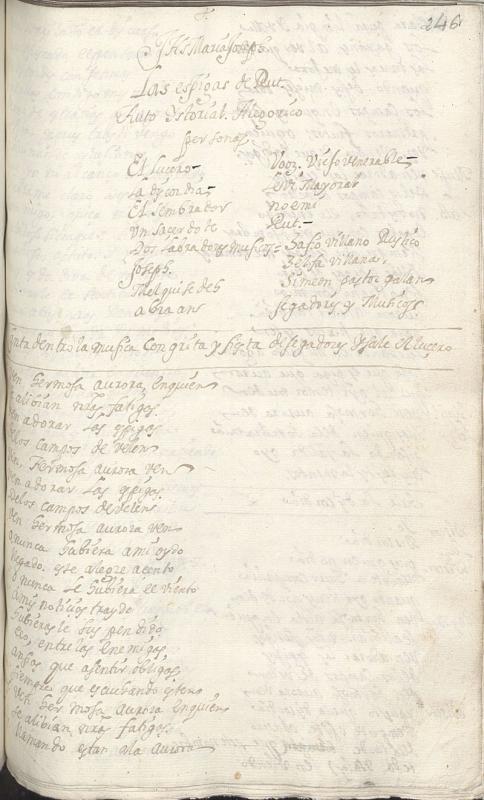 246
Jhs Maria Joseph.
Las espigas de Rut.
Auto ystorial. Alegorico
personas
El Lucero –
la discordia –
El sembrador
Un sacerdote
Dos labradores musicos =
Joseph.
Melquisedeh
abraan
Vooz. Viejo venerable –
Levi Mayoral
noemi
Rut. –
Safio villano Rustico
Zelfa villana.
Simeon pastor galan
segadores y Musicos
dentro la musica con grita y fiesta de segadores y sale el lucero
ven hermosa aurora en quien
alibian nras fatigas
en adorar las espigas
los campos de velen
hermosa aurora ven
en adorar las espigas
de los campos de velen
ven hermosa aurora ven
o nunca hubiera a mi oydo
llegado. este alegre acento
o nunca le hubiera el viento
a mis noticias traydo
hubierasle suspendido
eco, entre las enemigas
ansias que a sentir obligas
siempre que escuchando esten
ven hermosa aurora en quien
se alibian nras fatigas
llamando estan a la aurora